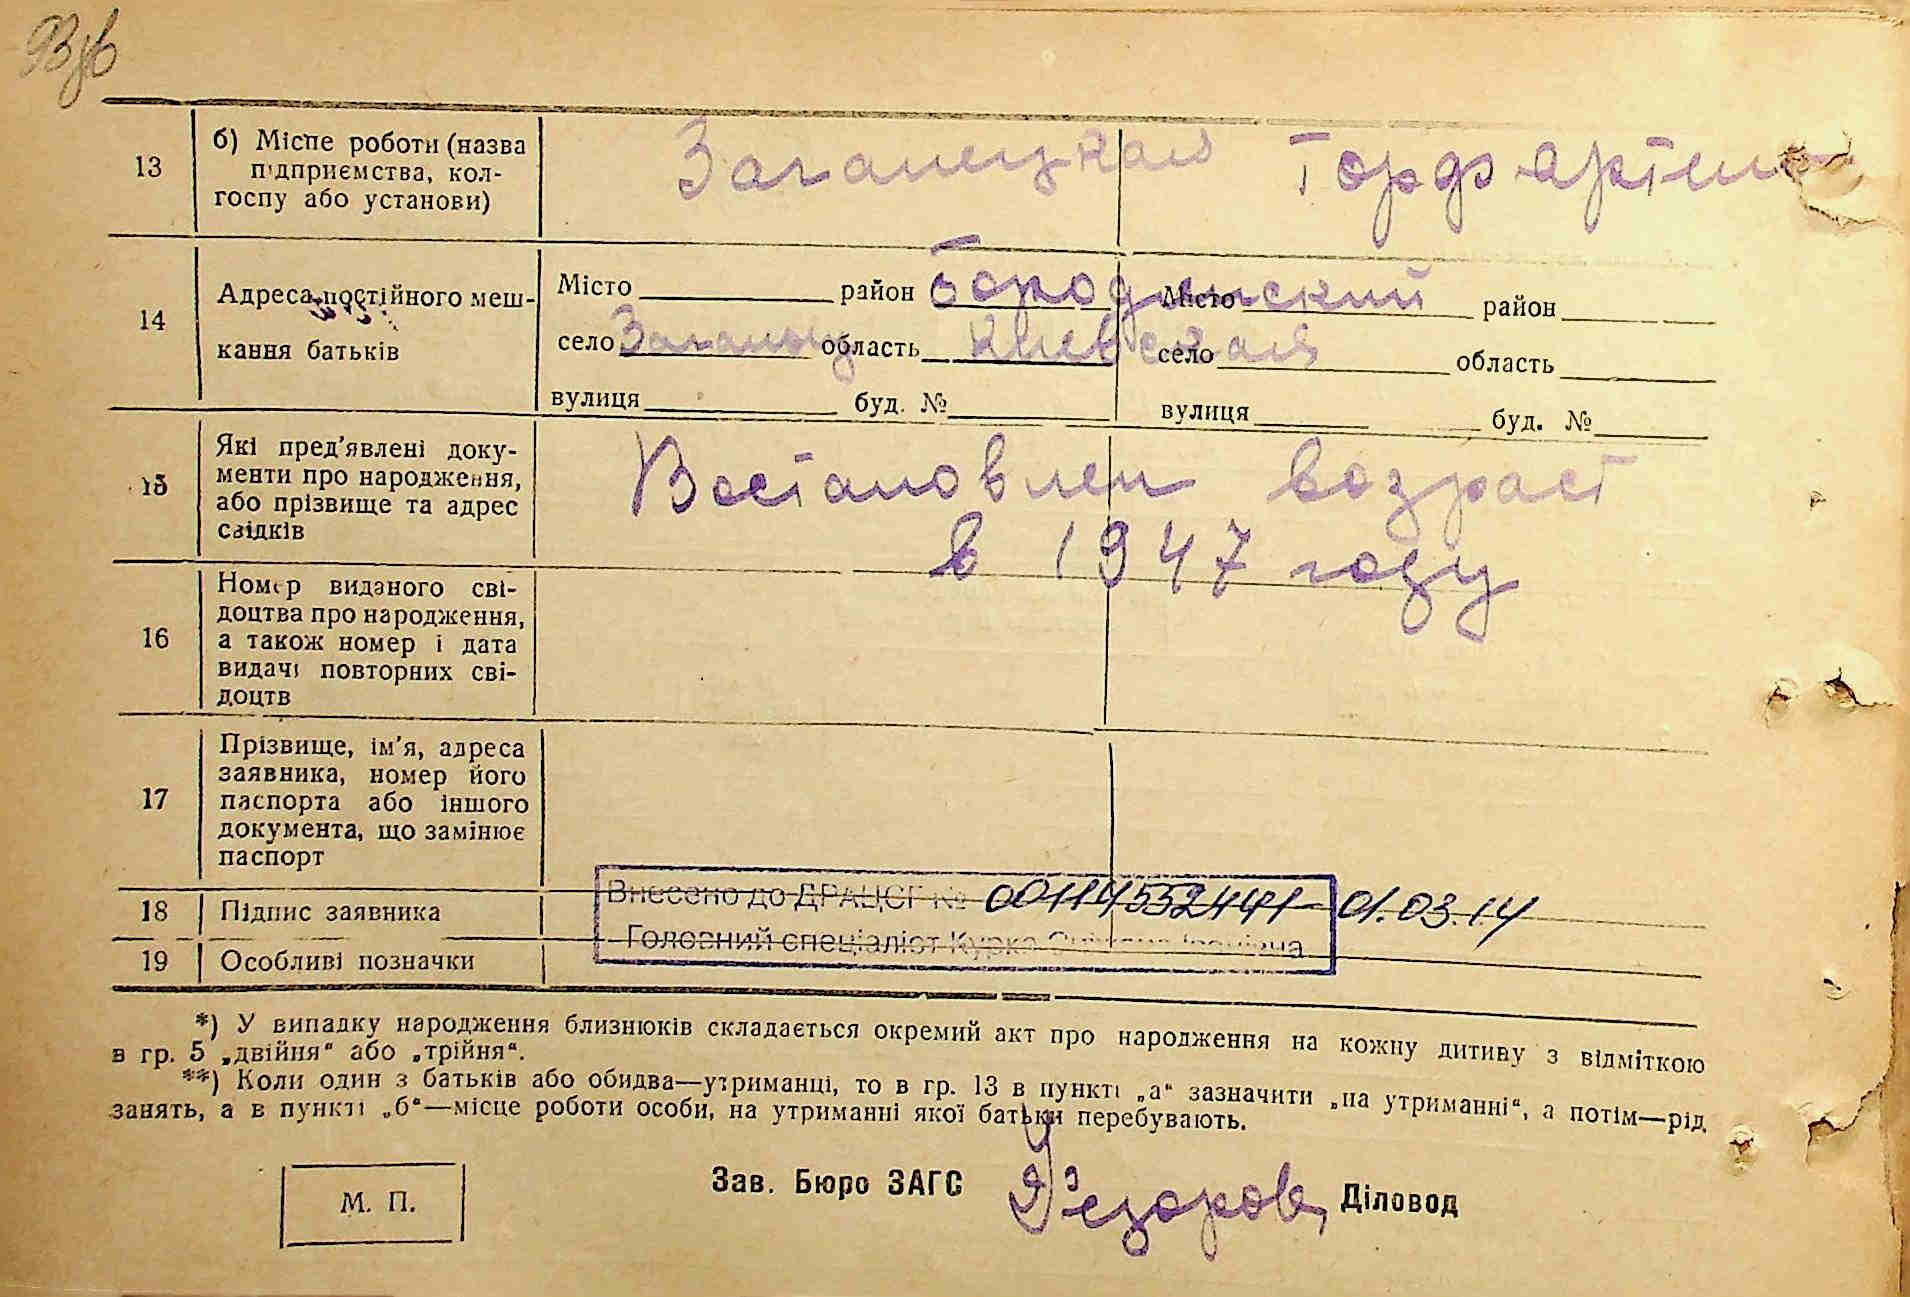 13 б) Місце роботи (назва підприємства, колгоспу або установи)
Заганецкая Торфартель
14 Адреса постійного меш-
кання батьків
Місто район Бородянский Місто район
село область Киевская село область
вулиця буд. № вулиця буд. №
15 Які пред'явлені доку-
менти про народження,
або прізвище та адрес
свідків
Востановлен возраст
в 1947 году
16 Номер виданого сві-
доцтва про народження,
а також номер і дата
видачі повторних сві-
доцтв
17 Прізвище, ім'я, адреса
заявника, номер його
паспорта або іншого
документа, що замінює
паспорт
18 Підпис заявника
Внесено до ДРАЦСГ № 00114532441 01.03.14
19 Особливі позначки
Головний спеціаліст Курка
*) У випадку народження близнюків складається окремий акт про народження на кожну дитину з відміткою
в гр. 5 „двійня“ або „трійня“.
**) Коли один з батьків або обидва—утриманці, то в гр. 13 в пункті „а“ зазначити „на утриманні“, а потім—рід
занять, а в пункті „б“—місце роботи особи, на утриманні якої батьки перебувають.
М. П.
Зав. Бюро ЗАГС
Діловод